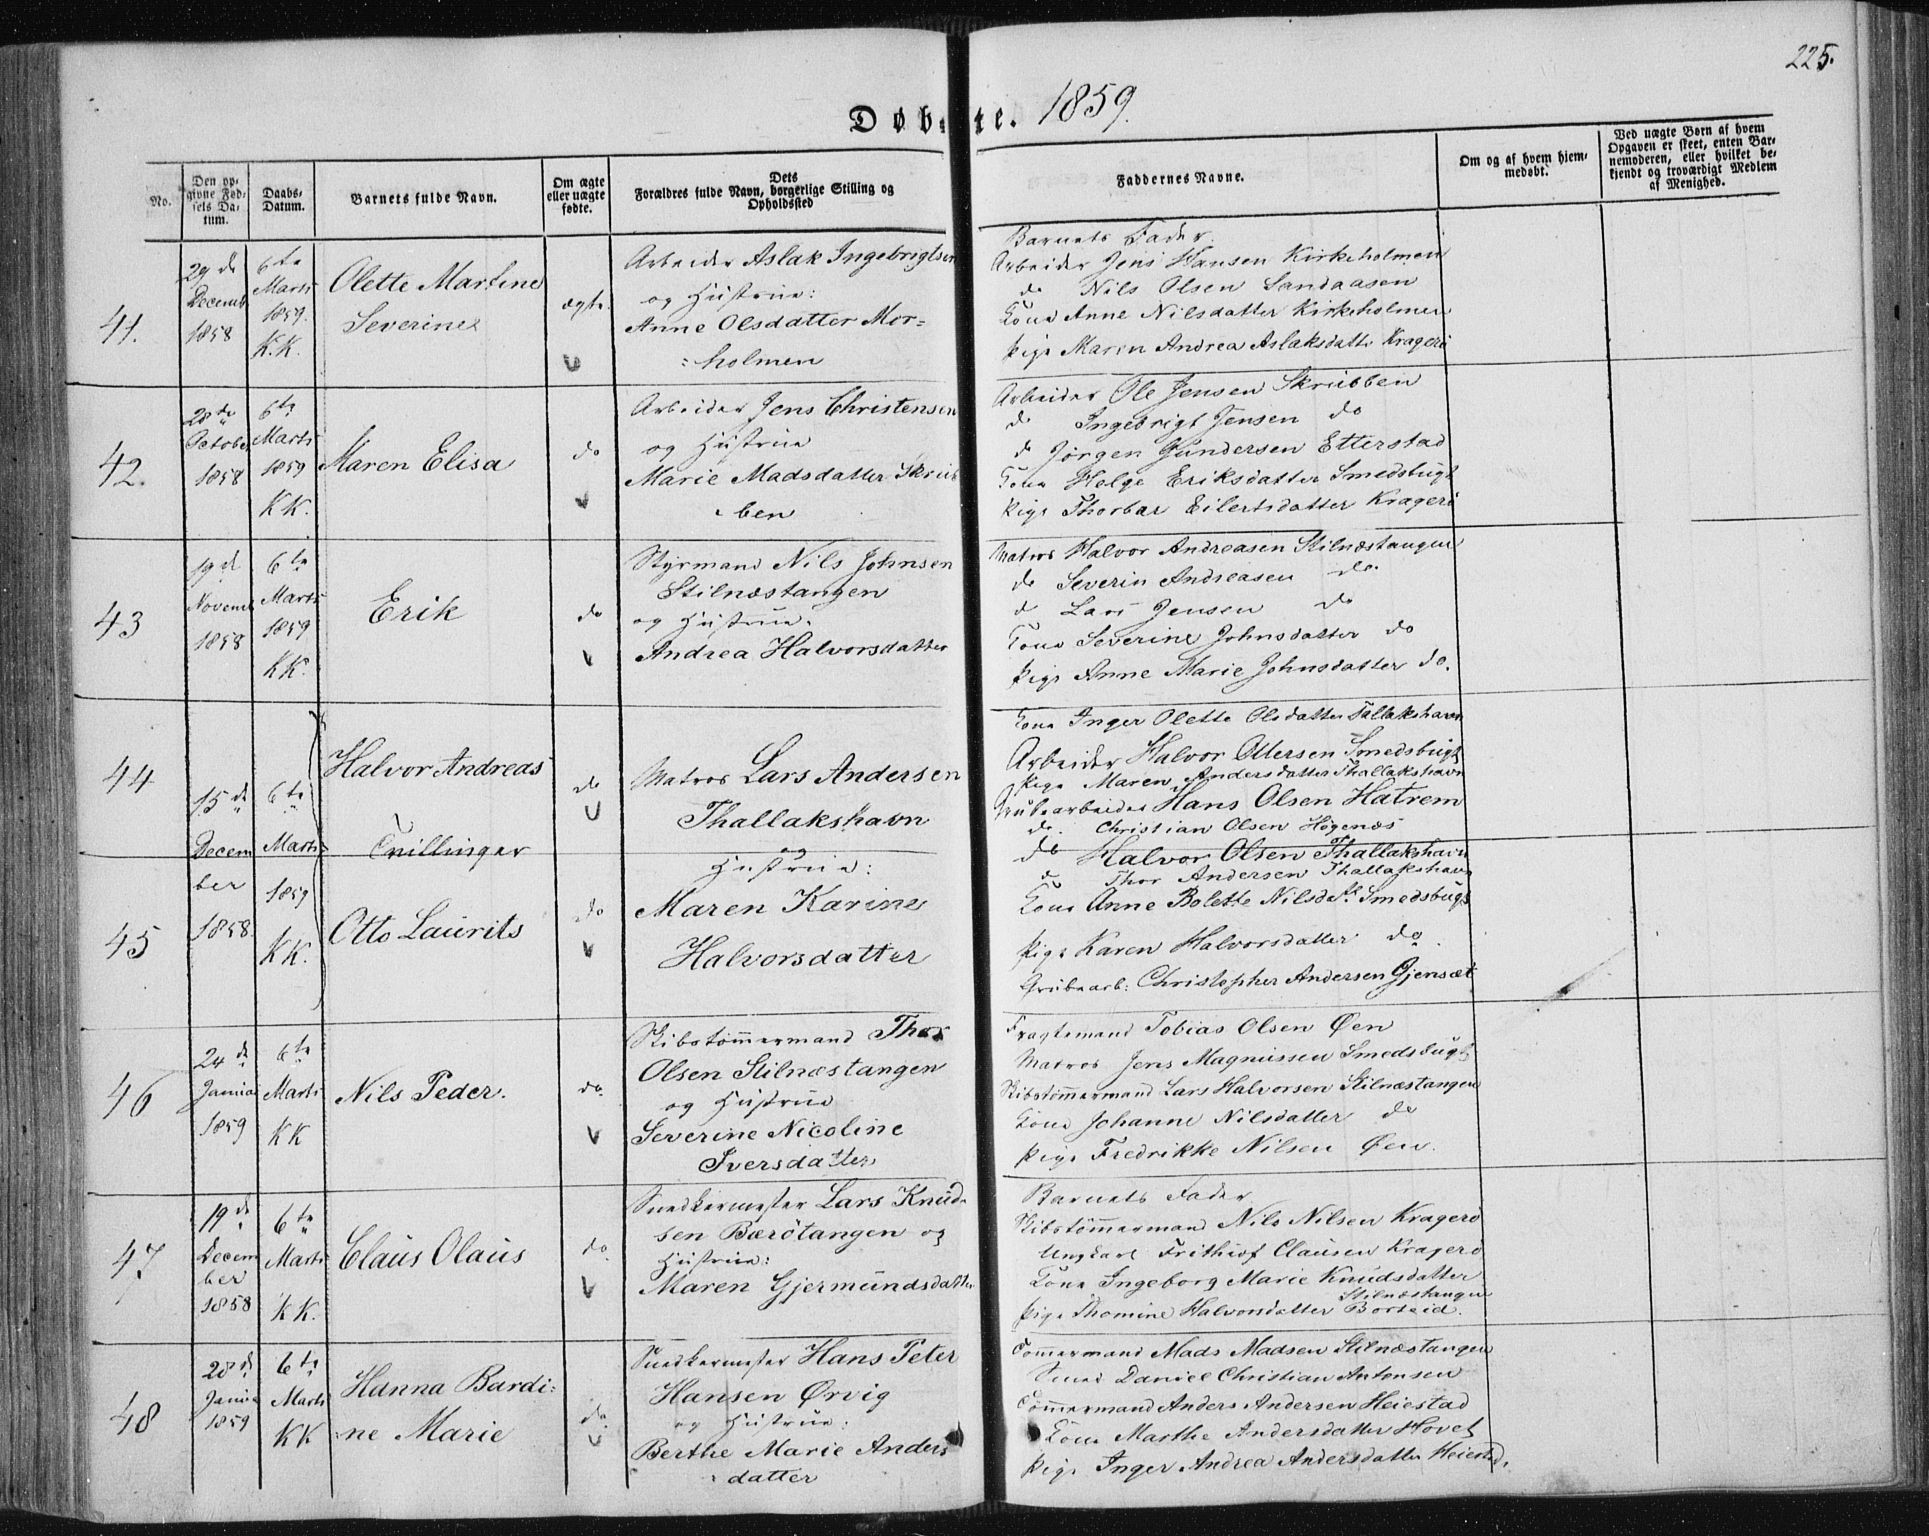 225.
Døbte. 1859.
No.
Den opgivne Fødsels Datum.
Daabs-Datum.
Barnets fulde Navn.
Om ægte eller uægte fødte.
Dets Forældres fulde Navn, borgerlige Stilling og Opholdssted
Faddernes Navne.
Om og af hvem hjemmedøbt.
Ved uægte Børn af hvem Opgaven er skeet, enten Barnemoderen, eller hvilket bekjendt og troværdigt Medlem af Menighed.
41.
29de Decemb 1858
6te Marts 1859. K.K.
Olette Martine
Severine
ægte.
Arbeider Aslak Ingebrigtsen
og Hustrue:
Anne Olsdatter Mor=
=holmen
Barnets Fader.
Arbeider Jens Hansen Kirkeholmen
do Nils Olsen Sandaasen
Kone Anne Nilsdatter Kirkeholmen
Pige Maren Andrea Aslaksdatter Kragerö
42.
28de October 1858
6te Marts 1859 KK.
Maren Elisa
do
Arbeider Jens Christensen
og Hustrue
Marie Madsdatter Skrub
ben
Arbeider Ole Jensen Skrubben
do Ingebrigt Jensen do
do Jørgen Gundersen Etterstad
Kone Helge Eriksdatter Smedsbugt
Pige Thorbar Eilertsdatter Kragerö
43
19de Novemb 1858
6te Marts 1859 KK.
Erik
do
Styrmand Nils Johnsen
Stilnæstangen
og Hustrue.
Andrea Halvorsdatter
Matros Halvor Andreasen Stilnæstangen
do Severin Andreasen do
d Lars Jensen do
Kone Severine Johnsdatter do
Pige Anne Marie Johnsdatter do.
44
15de December 1858.
6te Marts 1859 KK.
Halvor Andreas
Tvillinger
do
Matros Lars Andersen
Thallakshavn
og
Hustrue:
Maren Karine
Halvorsdatter
Kone Inger Olette Olsdatter Tallakshavn
Arbeider Halvor Ottersen Smedsbugt
Pige Maren Andersdatter Thallakshavn
Grubearbeider Hans Olsen Hatrem
do. Christian Olsen Högenæs
45
Otto Laurits
do
do Halvor Olsen Thallakshavn
d Thor Andersen Thallakshavn
Kone Anne Bolette Nilsdtr. Smedsbugt
Pige Karen Halvorsdatter do.
Grubearb: Christopher Andersen Gjensæt
46
24de Januar 1859
6te Marts KK
Nils Peder.
do.
Skibstömmermand Thor
Olsen Stilnæstangen
og Hustrue
Severine Nicoline
Iversdatter
Fragtemand Tobias Olsen Øen
Matros Jens Magnussen Smedsbugt
Skibstömmermand Lars Halvorsen Stilnæstangen
Kone Johanne Nilsdatter do
Pige Fredrikke Nilsen Øen.
47
19de December 1858
6te Marts KK.
Claus Olaus
do.
Snedkermester Lars Knud
sen Barötangen og
Hustrue:
Maren Gjermundsdatter
Barnets Fader
Skibstömmermand Nils Nilsen Kragerö
Ungkarl Frithiof Clausen Kragerö
Kone Ingeborg Marie Knudsdatter
Stilnæstangen
Pige Thomine Halvorsdatter Borteid.
48
28de Januar 1859
6te Marts KK
Hanna Bardi=
=ne Marie
do.
Snedkermester Hans Peter
Hansen Ørvig
og Hustrue:
Berthe Marie Anders
datter
Tömmermand Mads Madsen Stilnæstangen
Smed Daniel Christian Antonsen
Tömmermand Anders Andersen Heiestad
Kone Marthe Andersdatter Hovet
Pige Inger Andrea Andersdatter Heiestad.